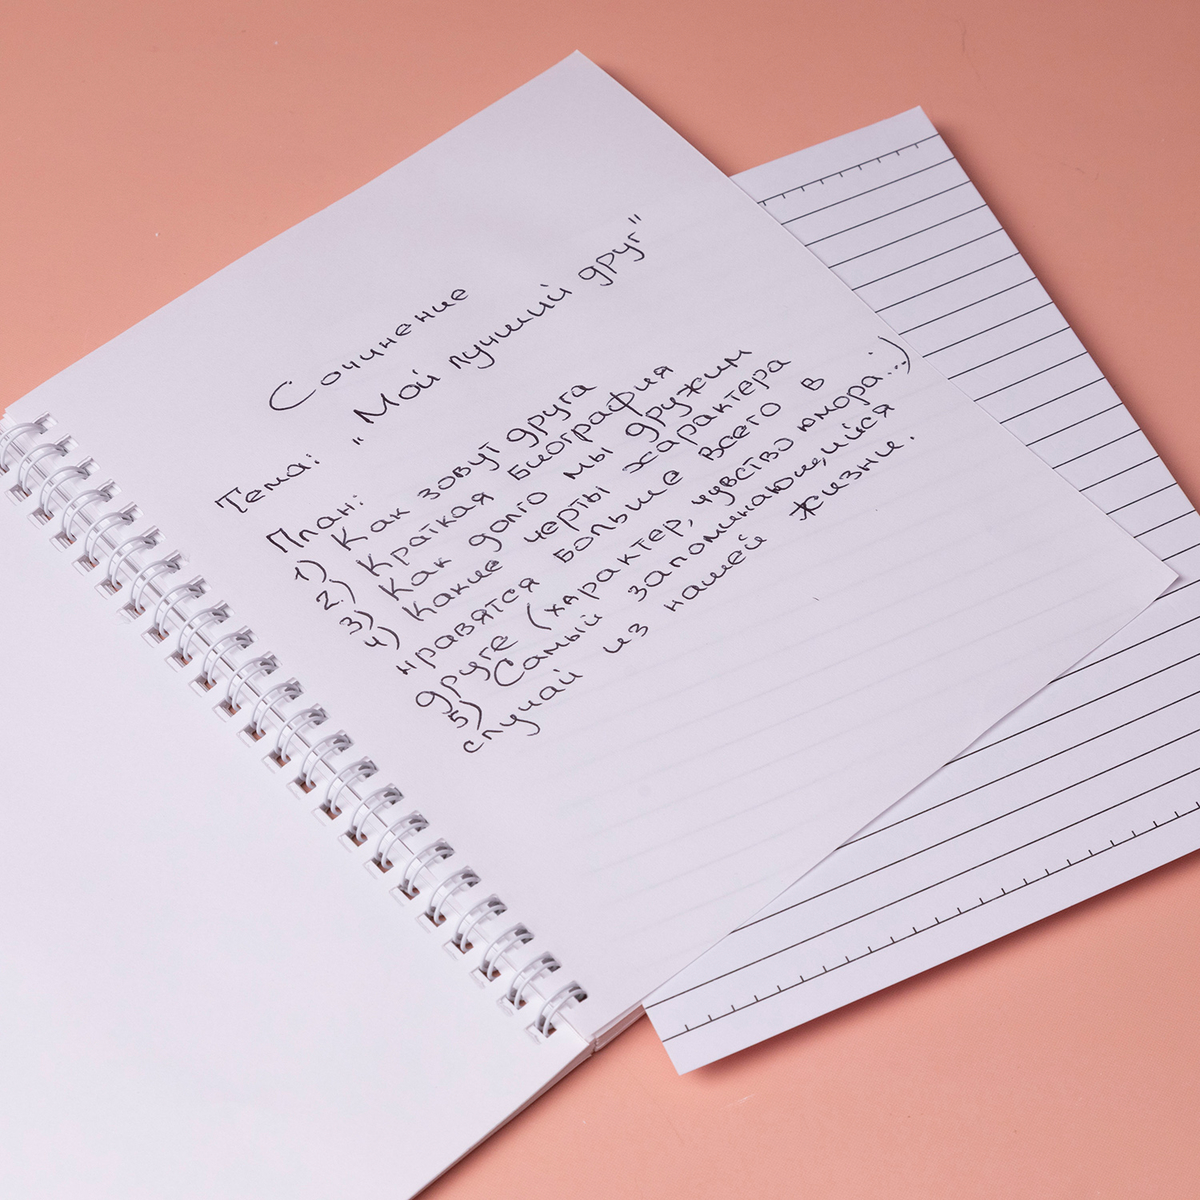 Сочинение
Тема: "Мой лучший друг"
План:
1) Как зовут друга
2) Краткая биография
3) Как долго мы дружим
4) Какие черты характера
нравятся больше всего в
друге (характер, чувство юмора...)
5) Самый запоминающийся
случай из нашей жизни.